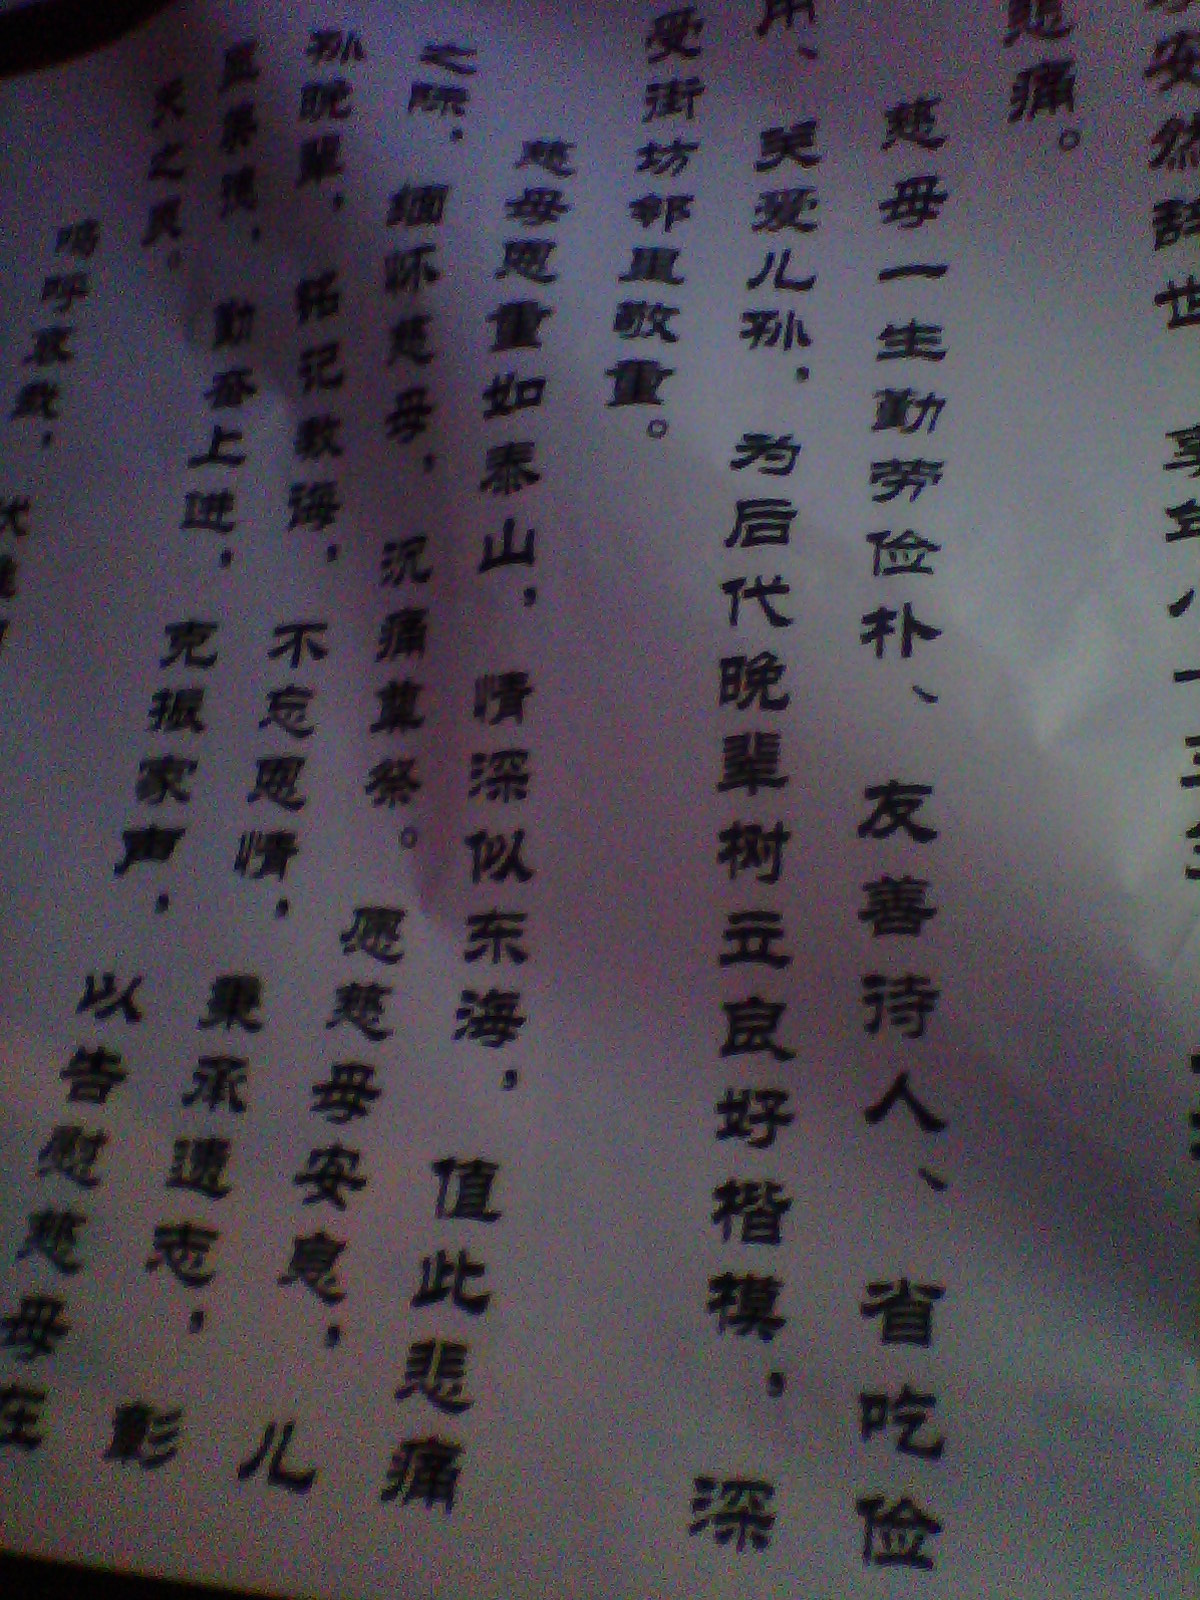 安然辞世
悲痛。
慈母一生勤劳俭朴、友善待人、省吃俭
用、关爱儿孙,为后代晚辈树立良好楷模,深
受街坊邻里敬重。
慈母恩重如泰山,情深似东海,值此悲痛
之际,缅怀慈母,沉痛奠祭。愿慈母安息,儿
孙晚辈,铭记教诲,不忘恩情,秉承遗志,彭
勤奋上进,克振家声,以告慰慈母在
天之灵。
呜呼哀哉,